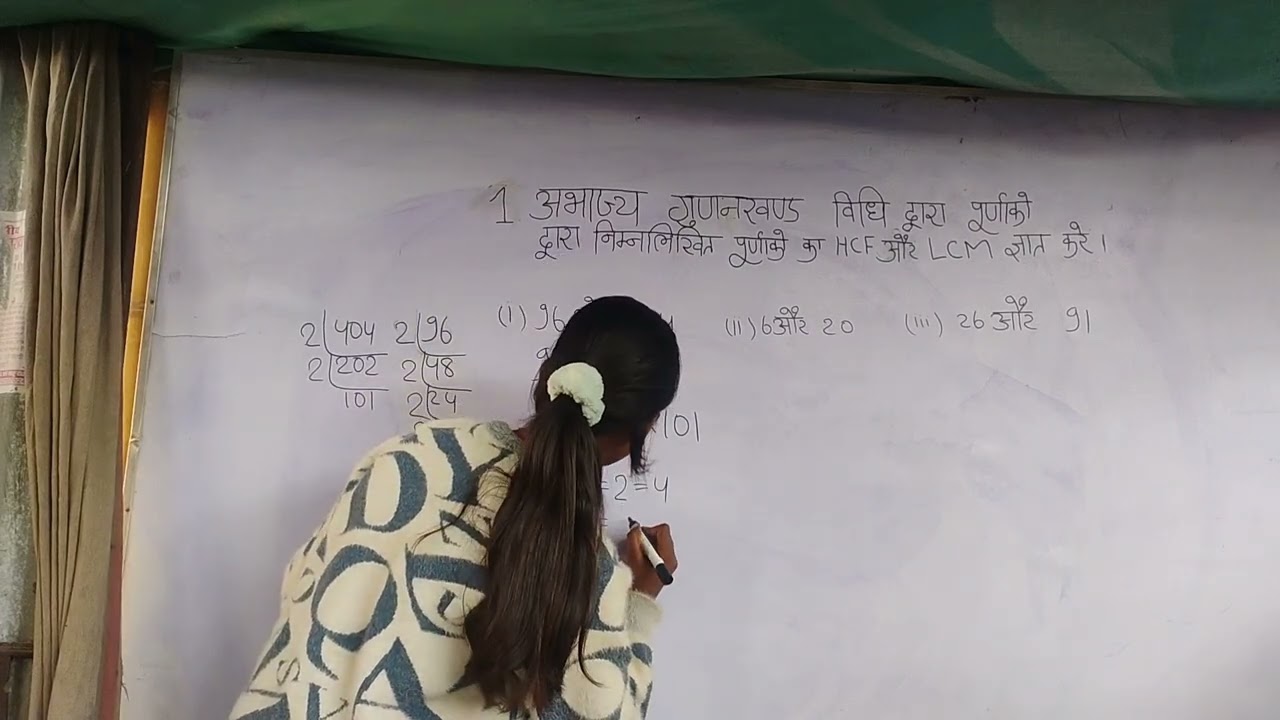 1 अभाज्य गुणनखण्ड विधि द्वारा पूर्णाको
द्वारा निम्नालिखित पूर्णाको का HCF और LCM ज्ञात करे।
(i) 96
(ii) 6 और 20
(iii) 26 और 91
2 404
2 202
101
2 96
2 48
2 24
101
=2=4